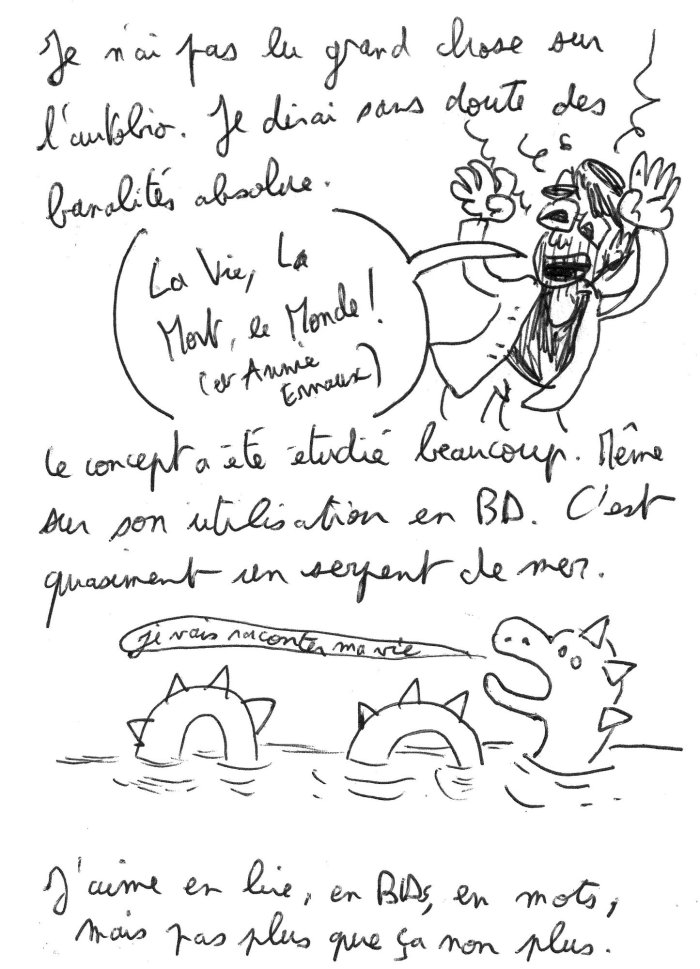 Je n'ai pas lu grand chose sur
l'autobio. Je dirai sans doute des
banalités absolue.
La Vie, La
Mort, le Monde !
(et Annie
Ernaux)
Le concept a été étudié beaucoup. Même
sur son utilisation en BD. C'est
quasiment un serpent de mer.
je vais raconter ma vie
J'aime en lire, en BDs, en mots,
mais pas plus que ça non plus.